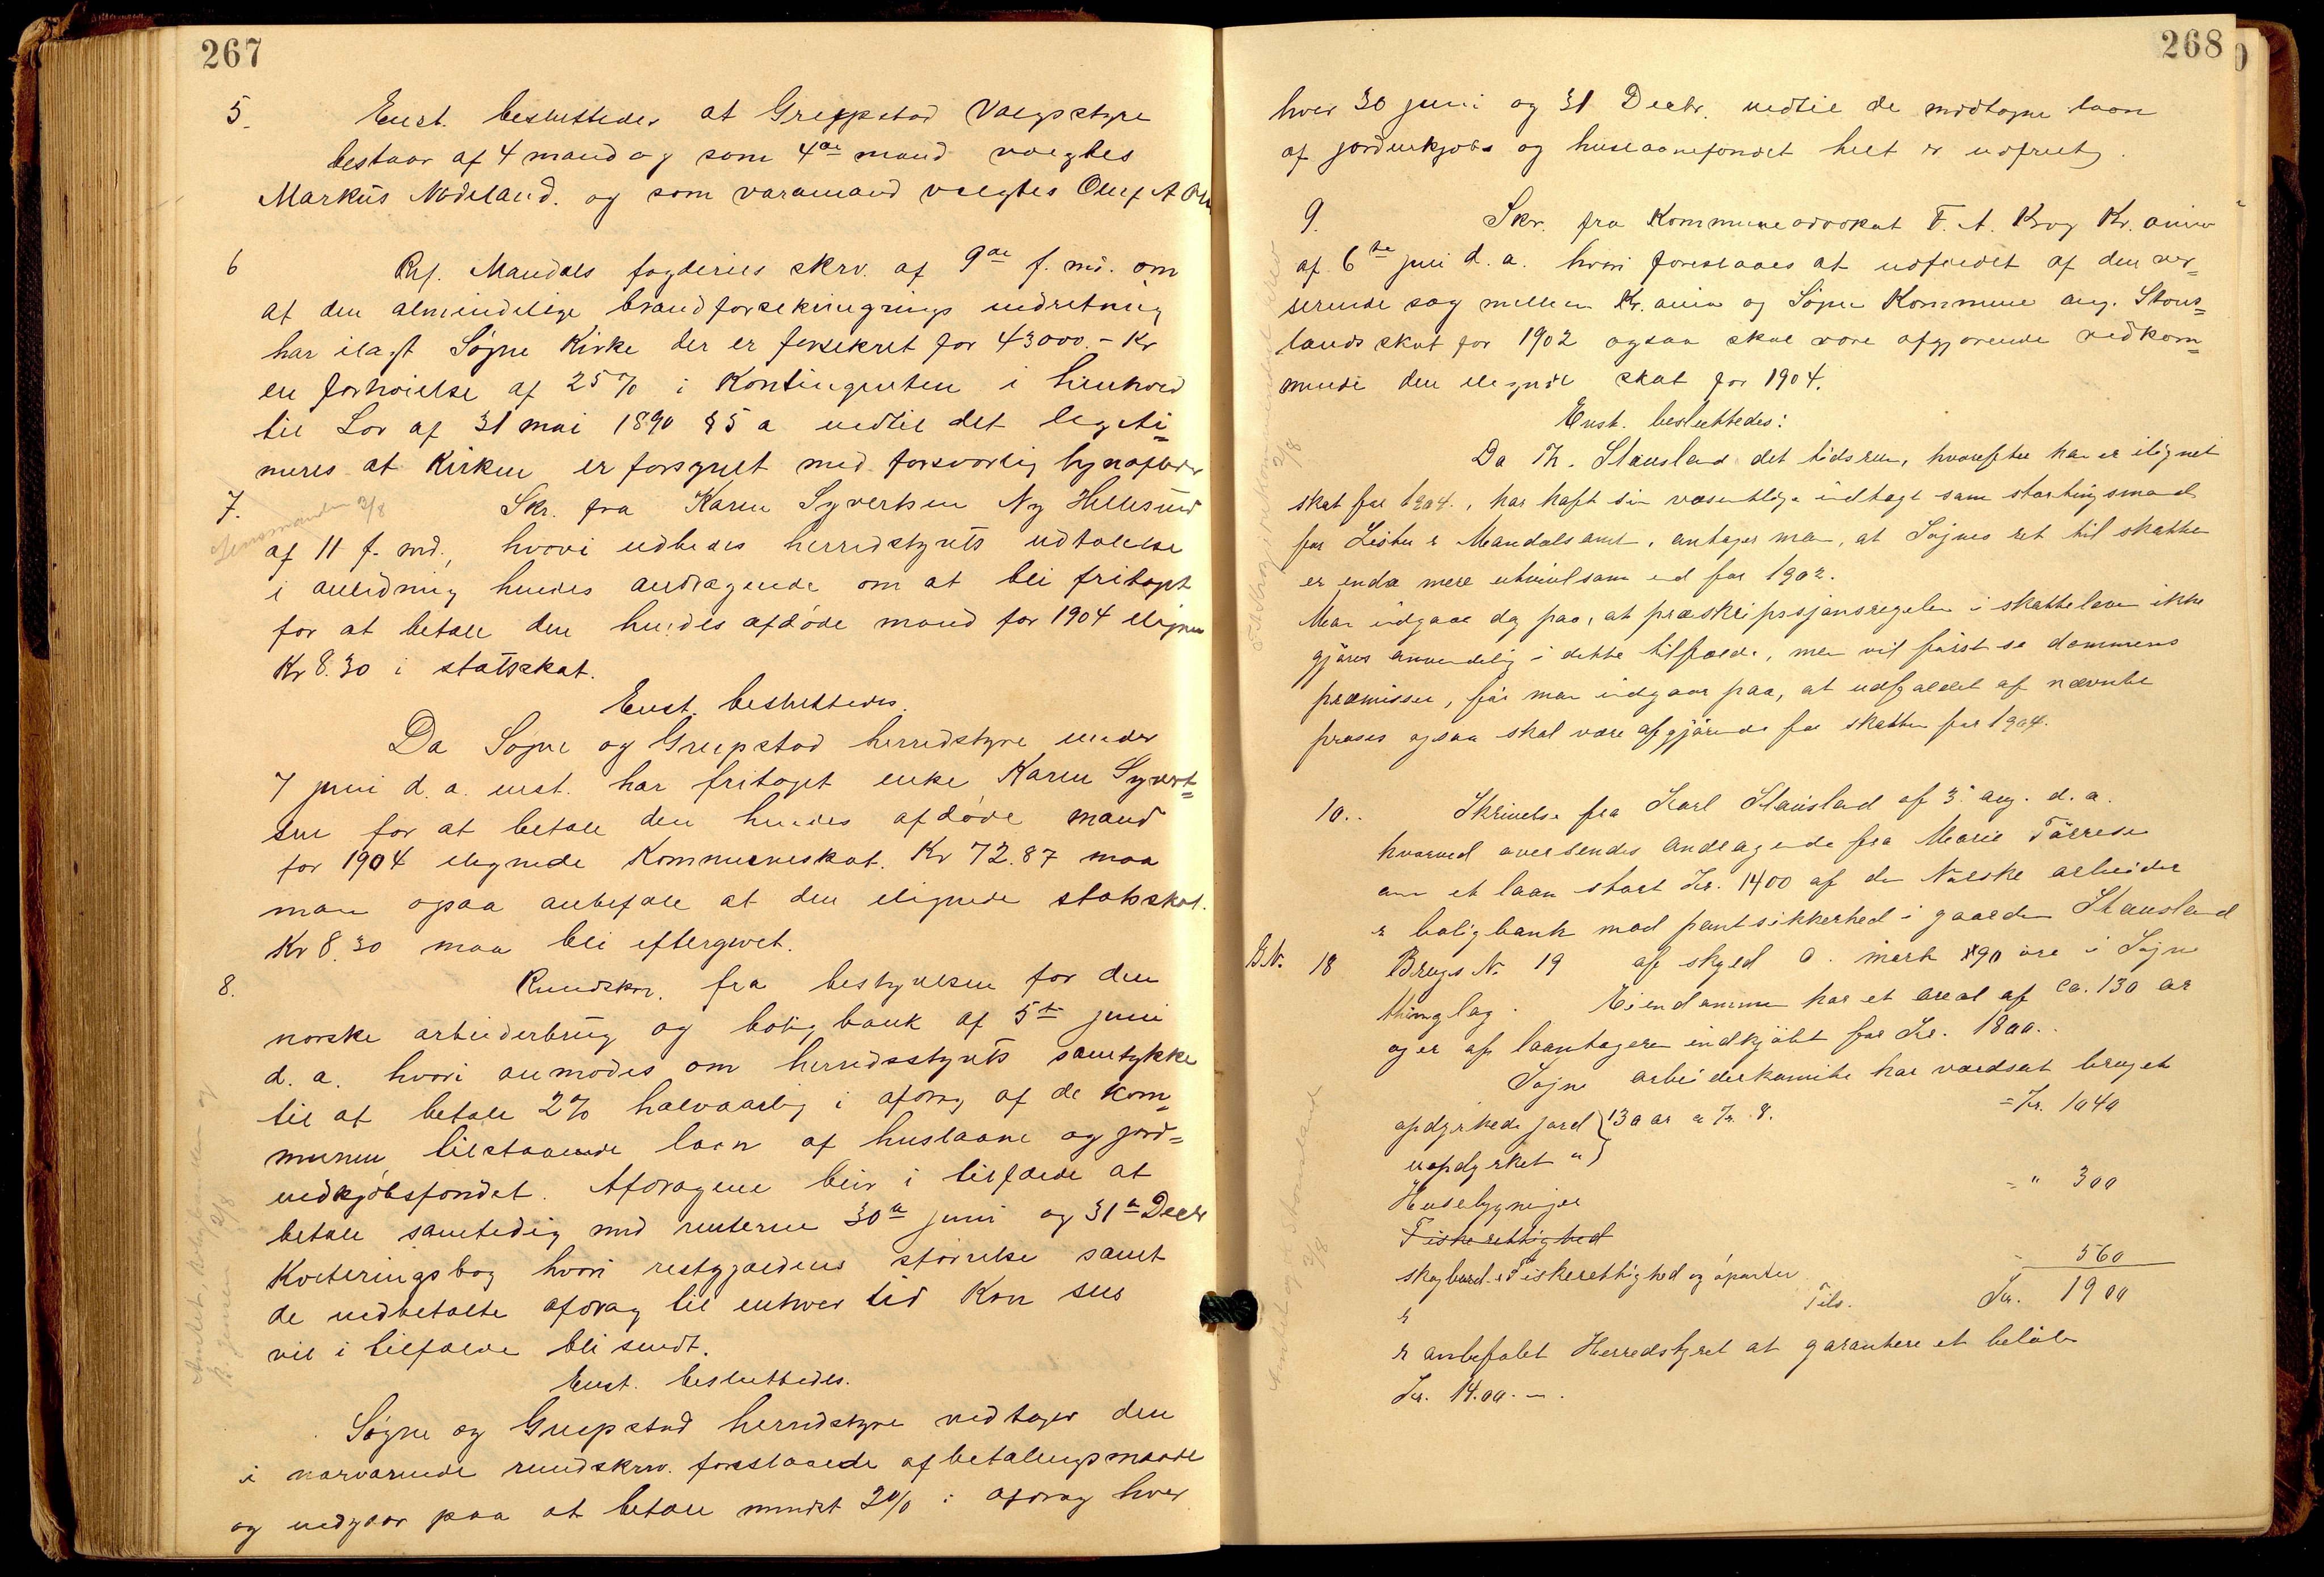 267
5. Enst. besluttedes at Greppstad Valgstyre
bestaar af 4 mand og som 4de mand valgtes
Markus Nodeland. og som varamand valgtes Oluf A
6 Ref. Mandals fogderies skrv. af 9de f. md. om
at den almindelige brandforsekringrings indretning
har ilagt Søgne Kirke der er forsekret for 43000.- Kr
en forhøielse af 25% i Kontingenten i henhold
til Lov af 31 mai 1890 §5 a indtil det legiti=
meres at Kirken er forsynet med forsvarlig lynafleder
7. Skr. fra Karen Syvertsen Ny Hellesund
Lensmanden 2/8
af 11 f. md., hvori udbedes herredstyrets udtalelse
i anledning hendes andragende om at bli fritaget
for at betale den hendes afdøde mand for 1904 ilignede
Kr 8.30 i statsskat.
Enst. besluttedes.
Da Søgne og Greipstad herredstyre under
7 juni d. a. enst. har fritaget enke Karen Syvert=
sen for at betale den hendes afdøde mand
for 1904 ilignede Kommuneskat. Kr 72.87 maa
man ogsaa anbefale at den ilignede statsskat.
Kr 8.30 maa bli eftergivet.
8. Rundskr. fra bestyrelsen for den
norske arbeiderbrug og boligbank af 5te juni
d. a. hvori anmodes om herredsstyrets samtykke
til at betale 2% halvaarlig i afdrag af de kom=
munen tilstaaende laan af huslaane og jord=
indkjøbsfondet. Afdragene blir i tilfælde at
betale samtidig med renterne 30te juni og 31te Decbr
Kvitteringsbog hvori restgjældens størrelse samt
de indbetalte afdrag til enhver tid kan sees
vil i tilfælde bli sendt.
Anmeldt, arbeiderbanken og
B. Jensen 2/8
Enst. besluttedes.
Søgne og Greipstad herredstyre vedtager den
i nærværende rundskriv. foreslaaede afbetalingsmaade
og indgaar paa at betale mindst 2% i afdrag hver
268
hver 30 juni og 31 Decbr. indtil de modtagne laan
af jordindkjøbs og huslaanefondet helt er udfriet.
9. Skr. fra Kommuneadvokat F. A. Krog Kr. ania
af 6te juni d. a. hvori foreslaaes at udfaldet af den ver=
serende sag mellem Kr. ania og Søgne Kommune ang. Staus=
lands skat for 1902 ogsaa skal være afgjørende vedkom=
mende den ilignede skat for 1904.
Enst. besluttedes:
Da Th. Stausland det tidsrum, hvorefter han er ilignet
skat for 1904., har haft sin væsentlige indtægt som stortingsmand
for Lister & Mandals amt, antager man, at Søgnes ret til skatten
er enda mere utvivlsom end for 1902.
Man indgaar dog paa, at præskripsjonsregelen i skatteloven ikke
gjøres anvendelig i dette tilfælde, men vil først se dommens
præmisser, før man indgaar paa, at udfaldet af nævnte
proses ogsaa skal være afgjørende for skatten for 1904.
2/8
10.. Skrivelse fra Karl Stausland af 3. aug. d. a.
hvorved oversendes andragende fra Marie Tørresen
om et laan stort Kr. 1400 af den Norske arbeider
& boligbank mod pantsikkerhed i gaarden Stausland
G.N. 18 Brugs N. 19 af skyld 0. mark 90 øre i Søgne
thinglag. Eiendommen har et areal af ca. 130 ar
og er af laantageren indkjøbt for Kr. 1800..
Søgne arbeiderkomite har værdsat bruget
opdyrkede jord } 130 ar a Kr. 8. = Kr. 1040
uopdyrket " }
Husebygninger = " 300
Fiskerettighed
skogbund & Fiskerettighed og øparter - 560
Tils. Kr. 1900
&
& anbefalet Herredstyret at garantere et beløb
Kr. 14.00.-.
Anmeldt og Stausland
3/8